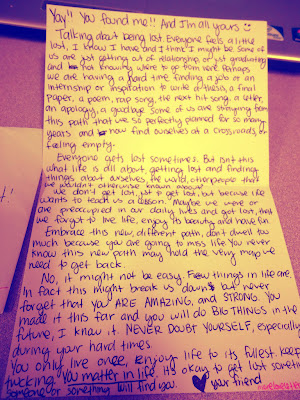 Yay!! You found me!! And I'm all yours
Talking about being lost. Everyone feels a little
lost, I know I have and I think I might be. Some of
us are just getting out of relationships or just graduating
and not knowing where to go from here. Perhaps
we are having a hard time finding a job or an
internship or inspiration to write a thesis, a final
paper, a poem, rap song, the next hit song, a letter,
an apology, a goodbye. Some of us are straying from
this path that we so perfectly planned for so many
years and now find ourselves at a crossroads or
feeling empty.
Everyone gets lost sometimes. But isn't this
what life is all about, getting lost and finding
things about ourselves, the world, other people that
we wouldn't otherwise known about?
We don't get lost, just to get lost, but because life
wants to teach us a lesson. Maybe we were or
are preoccupied in our daily lives and got lost, that
we forgot to live life, enjoy its beauty, and have fun.
Embrace this new, different path, don't dwell too
much because you are going to miss life. You never
know this new path may hold the very map we
need to get back.
No, it might not be easy. Few things in life are.
In fact this might break us down but never
forget that you ARE AMAZING, and STRONG. You
made it this far and you will do BIG THINGS in the
future, I know it. NEVER DOUBT YOURSELF, especially
during your hard times.
You only live once, enjoy life to its fullest. Keep
trucking. You matter in life. It's okay to get lost sometimes
someone or something will find you.
your friend